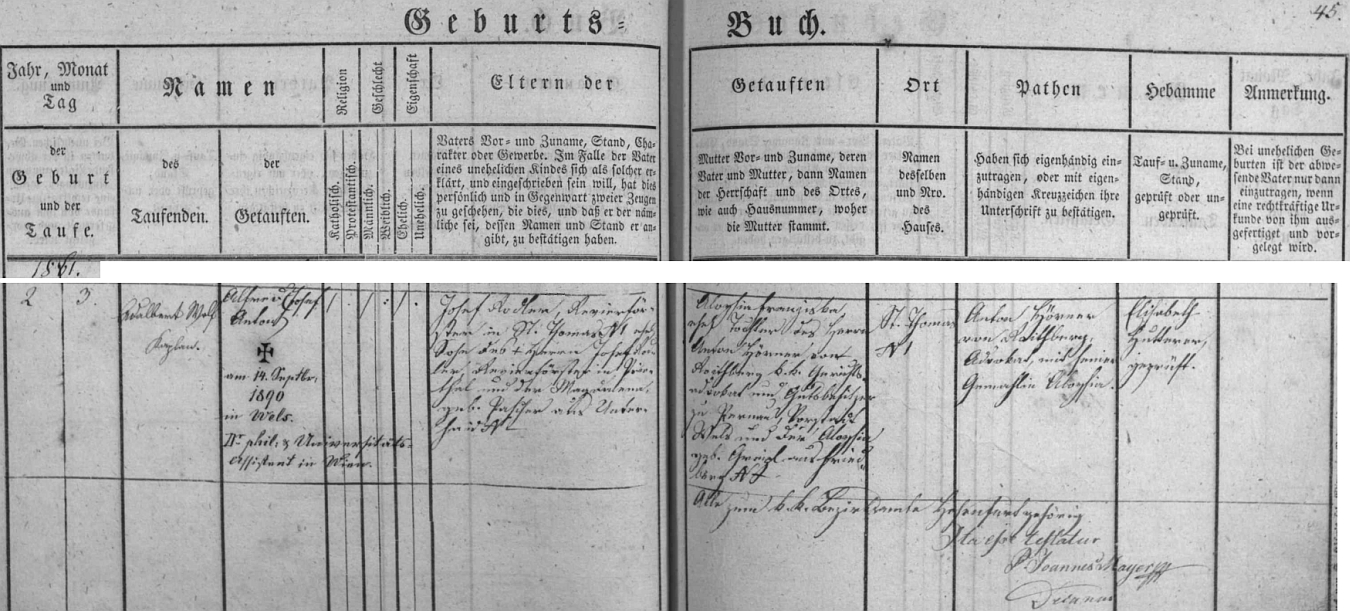 Geburts=
Buch.
45.
Jahr, Monat
und
Tag
Namen
Religion
Geschlecht
Eigenschaft
Eltern der
Getauften
Ort
Pathen
Hebamme
Anmerkung.
der
Geburt
und der
Taufe.
des
Taufenden.
der
Getauften.
Katholisch.
Protestantisch.
Männlich.
Weiblich.
Ehelich.
Unehelich.
Vaters Vor- und Zuname, Stand, Cha-
rakter oder Gewerbe. Im Falle der Vater
eines unehelichen Kindes sich als solcher er-
klärt, und eingeschrieben sein will, hat dies
persönlich und in Gegenwart zweier Zeugen
zu geschehen, die dies, und daß er der näm-
liche sei, dessen Namen und Stand er an-
gibt, zu bestätigen haben.
Mutter Vor- und Zuname, deren
Vater und Mutter, dann Namen
der Herrschaft und des Ortes,
wie auch Hausnummer, woher
die Mutter stammt.
Namen
desselben
und Nro.
des
Hauses.
Haben sich eigenhändig ein-
zutragen, oder mit eigen-
händigen Kreuzzeichen ihre
Unterschrift zu bestätigen.
Tauf- u. Zuname,
Stand,
geprüft oder un-
geprüft.
Bei unehelichen Ge-
burten ist der abwe-
sende Vater nur dann
einzutragen, wenn
eine rechtkräftige Ur-
kunde von ihm aus-
gefertiget und vor-
gelegt wird.
1861.
2 3.
Adalbert Wolf
Kaplan.
Alfred Josef
Anton
✠
am 14. Septbr.
1890
in Wels.
Dr phil: & Universitäts-
Assistent in Wien.
/ · / · / ·
Josef Rodler, Revierför-
ster in St. Thoma N 1, ehel.
Sohn des † Herrn Josef Rod-
ler, Revierförster in
thal und der Magdalena
geb. Pascher aus Unter-
N
Aloysia Franziska
ehel. Tochter des Herrn
Anton Hörner von
Roithberg k. k. Gerichts-
advokat und Gutsbesitzer
zu Pernau, Vorstadt
Wels und der Aloysia
geb. Greipl aus Fried-
berg N
St. Thoma
N 1
Anton Hörner
von Roithberg,
Advokat, mit seiner
Gemahlin Aloysia.
Elisabeth
Hutterer,
geprüft.
Alle zum k. k. Bezirksamte Hohenfurt gehörig
Ita esse testatur
P. Joannes Mayer
Decanus